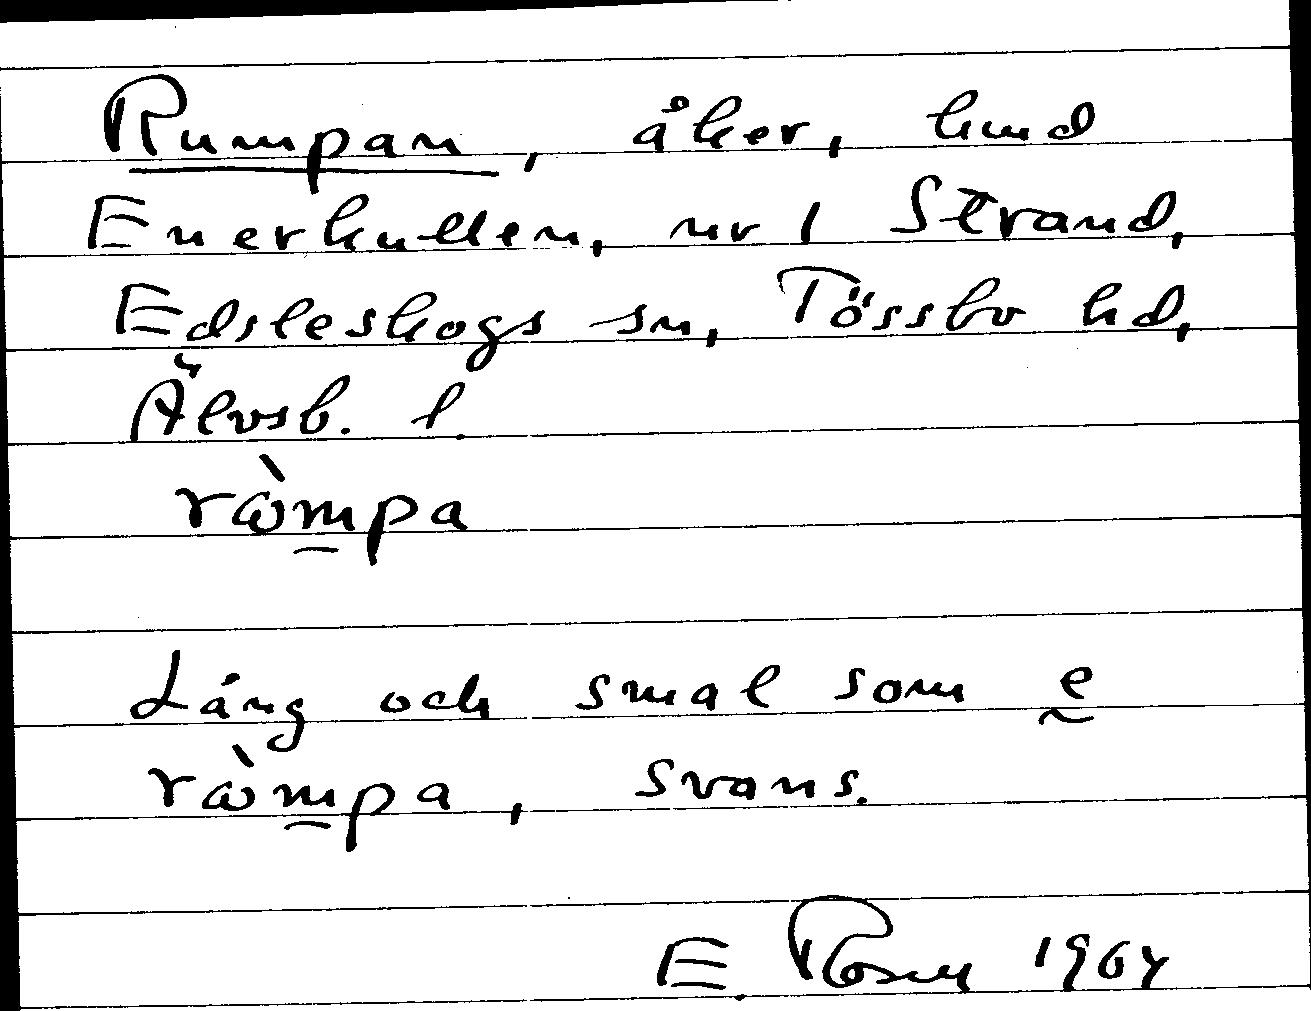 Rumpan, åker, hmd
Enerkullen, nr 1 Strand,
Edsleskogs sn, Tössbo hd,
Älvsb. l.
ròmpa
Lång och smal som e
ròmpa, svans.
E. Rosen 1964